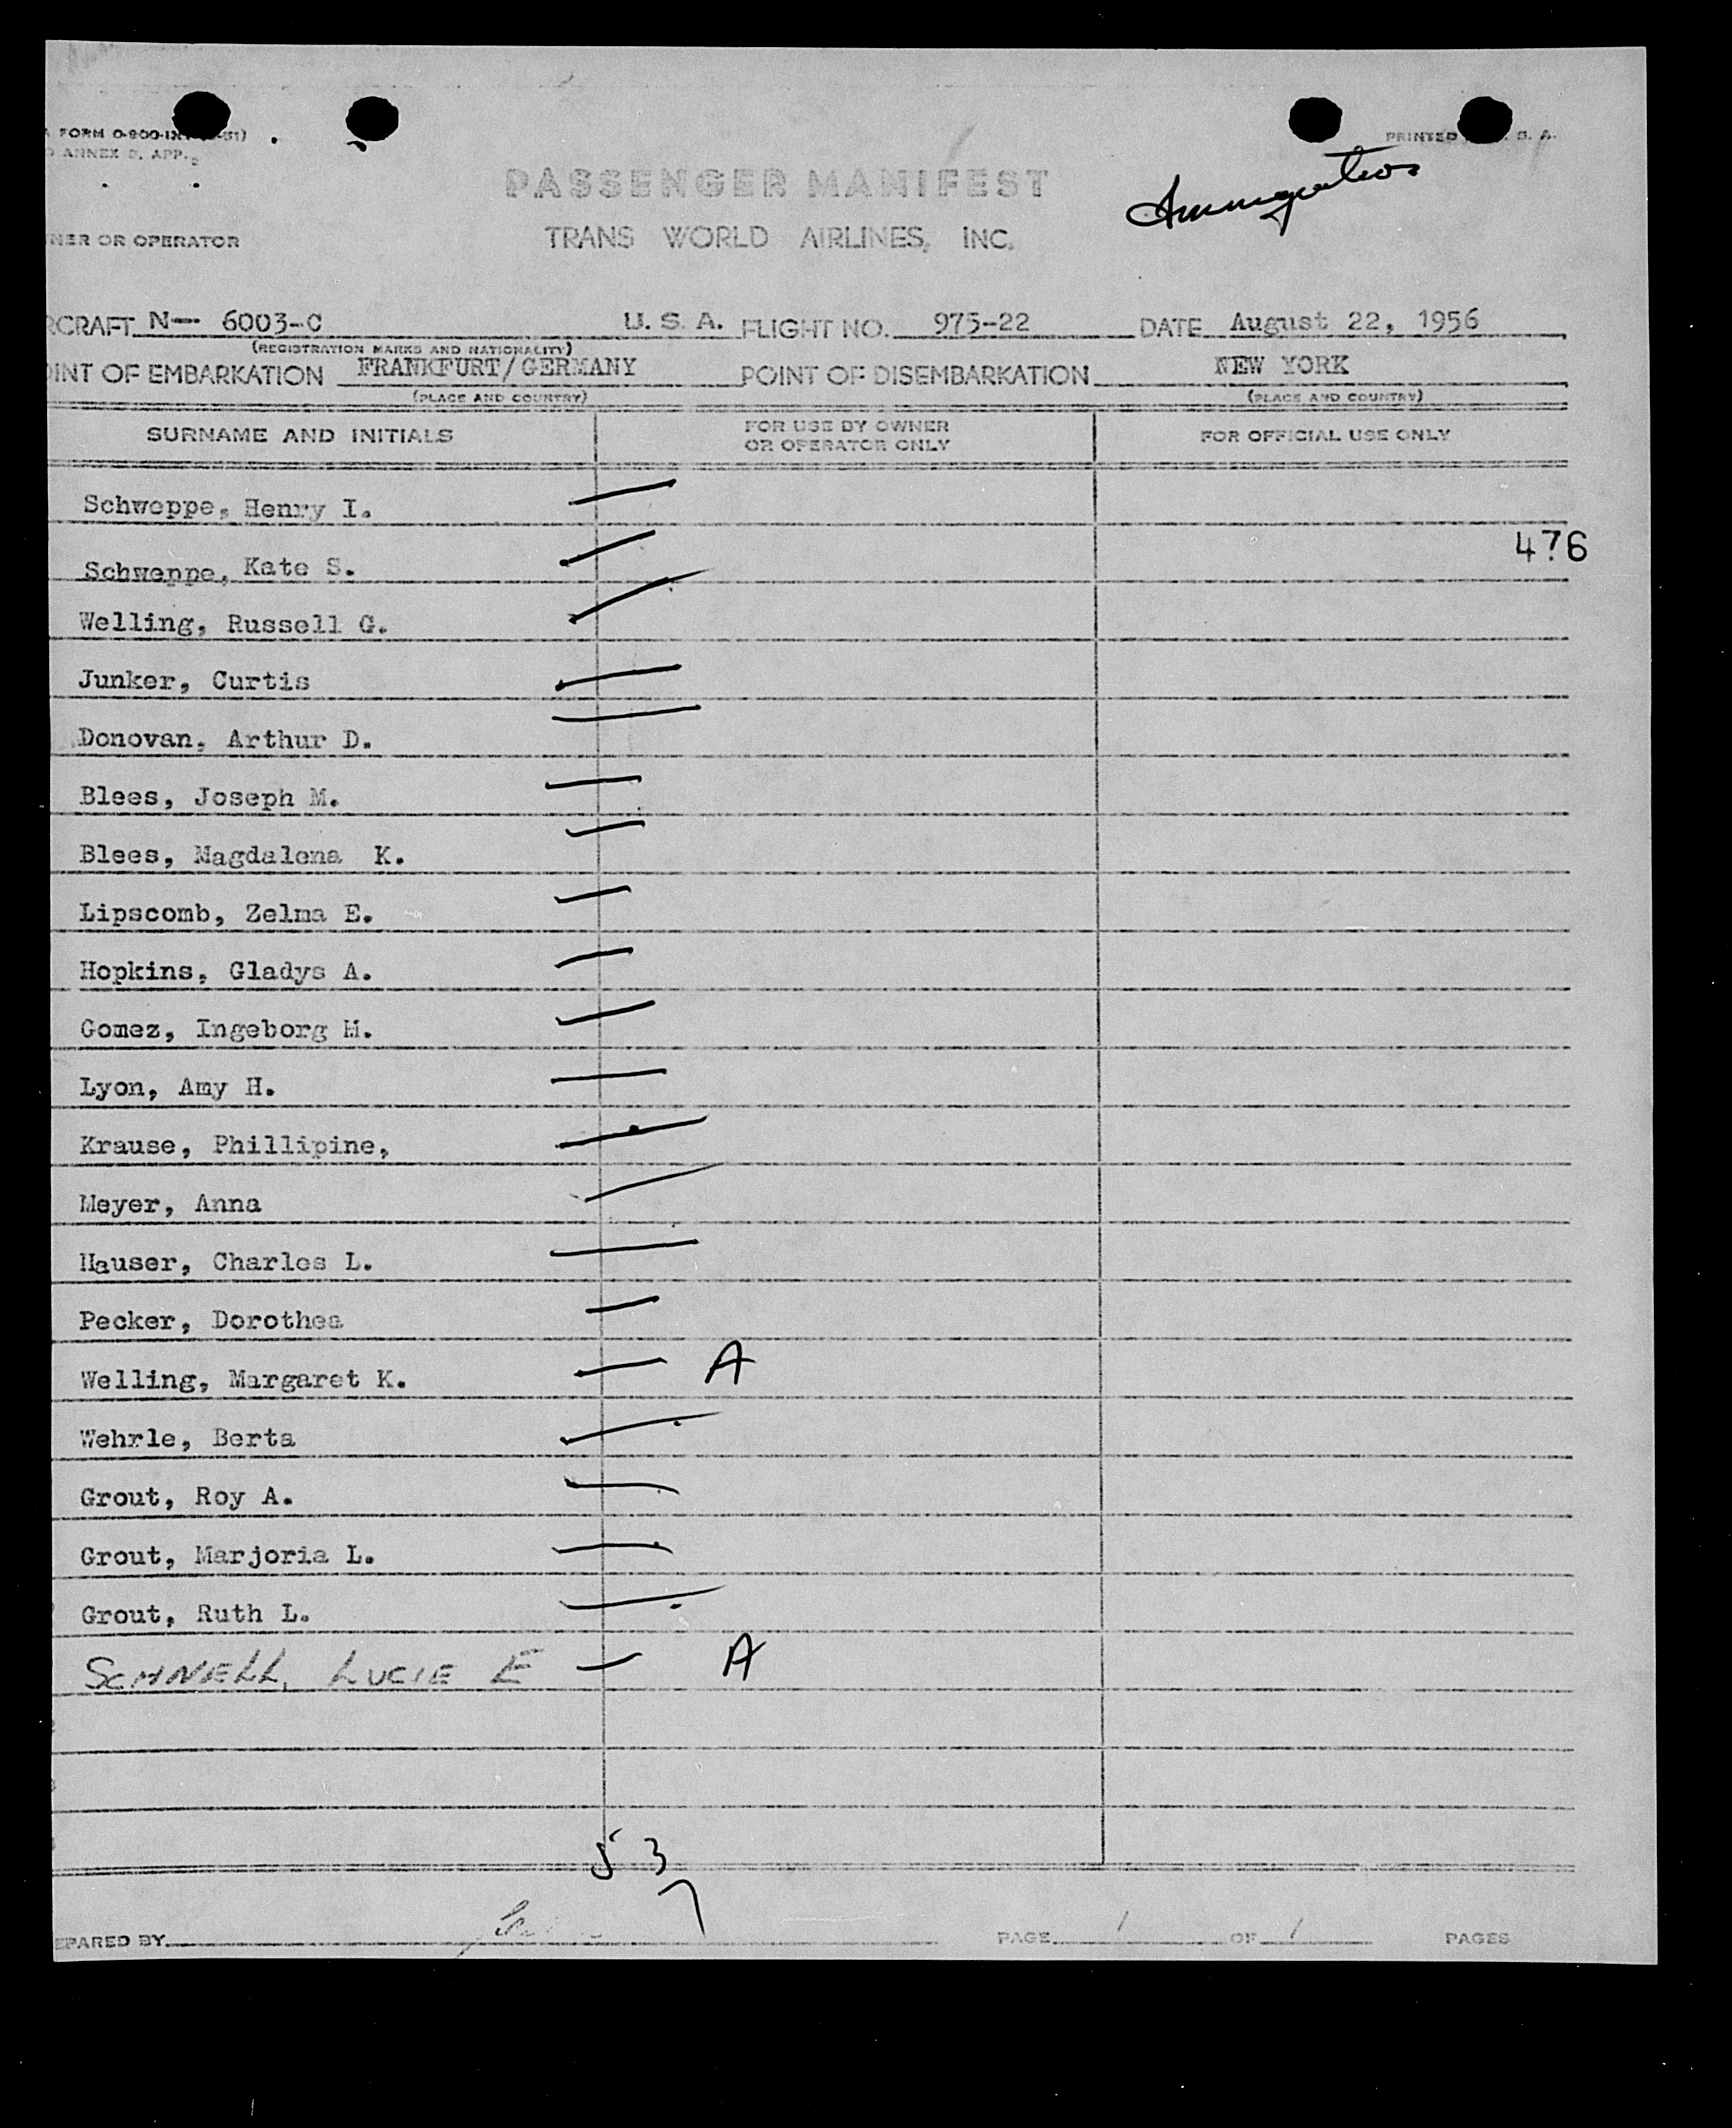 FORM O-900-INT
ANNEX 9, APP.
PRINTED S. A.
PASSENGER MANIFEST
Immigration
NER OR OPERATOR
TRANS WORLD AIRLINES, INC.
RCRAFT N— 6003-C U. S. A. FLIGHT NO. 975-22 DATE August 22, 1956
(REGISTRATION MARKS AND NATIONALITY)
OINT OF EMBARKATION FRANKFURT/GERMANY POINT OF DISEMBARKATION NEW YORK
(PLACE AND COUNTRY) (PLACE AND COUNTRY)
SURNAME AND INITIALS FOR USE BY OWNER OR OPERATOR ONLY FOR OFFICIAL USE ONLY
Schweppe, Henry I.
476
Schweppe, Kate S.
Welling, Russell G.
Junker, Curtis
Donovan, Arthur D.
Blees, Joseph M.
Blees, Magdalena K.
Lipscomb, Zelma E.
Hopkins, Gladys A.
Gomez, Ingeborg H.
Lyon, Amy H.
Krause, Phillipine,
Meyer, Anna
Hauser, Charles L.
Pecker, Dorothea
Welling, Margaret K. A
Wehrle, Berta
Grout, Roy A.
Grout, Marjoria L.
Grout, Ruth L.
SCHNELL, LUCIE E A
53
EPARED BY PAGE 1 OF 1 PAGES